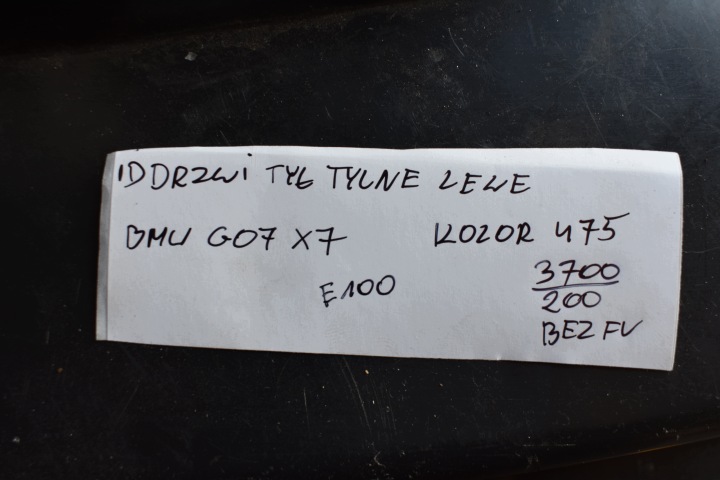 ID DRZWI TYŁ TYLNE LEWE
BMW G07 X7 KOLOR 475
3700
E100 200
BEZ FV